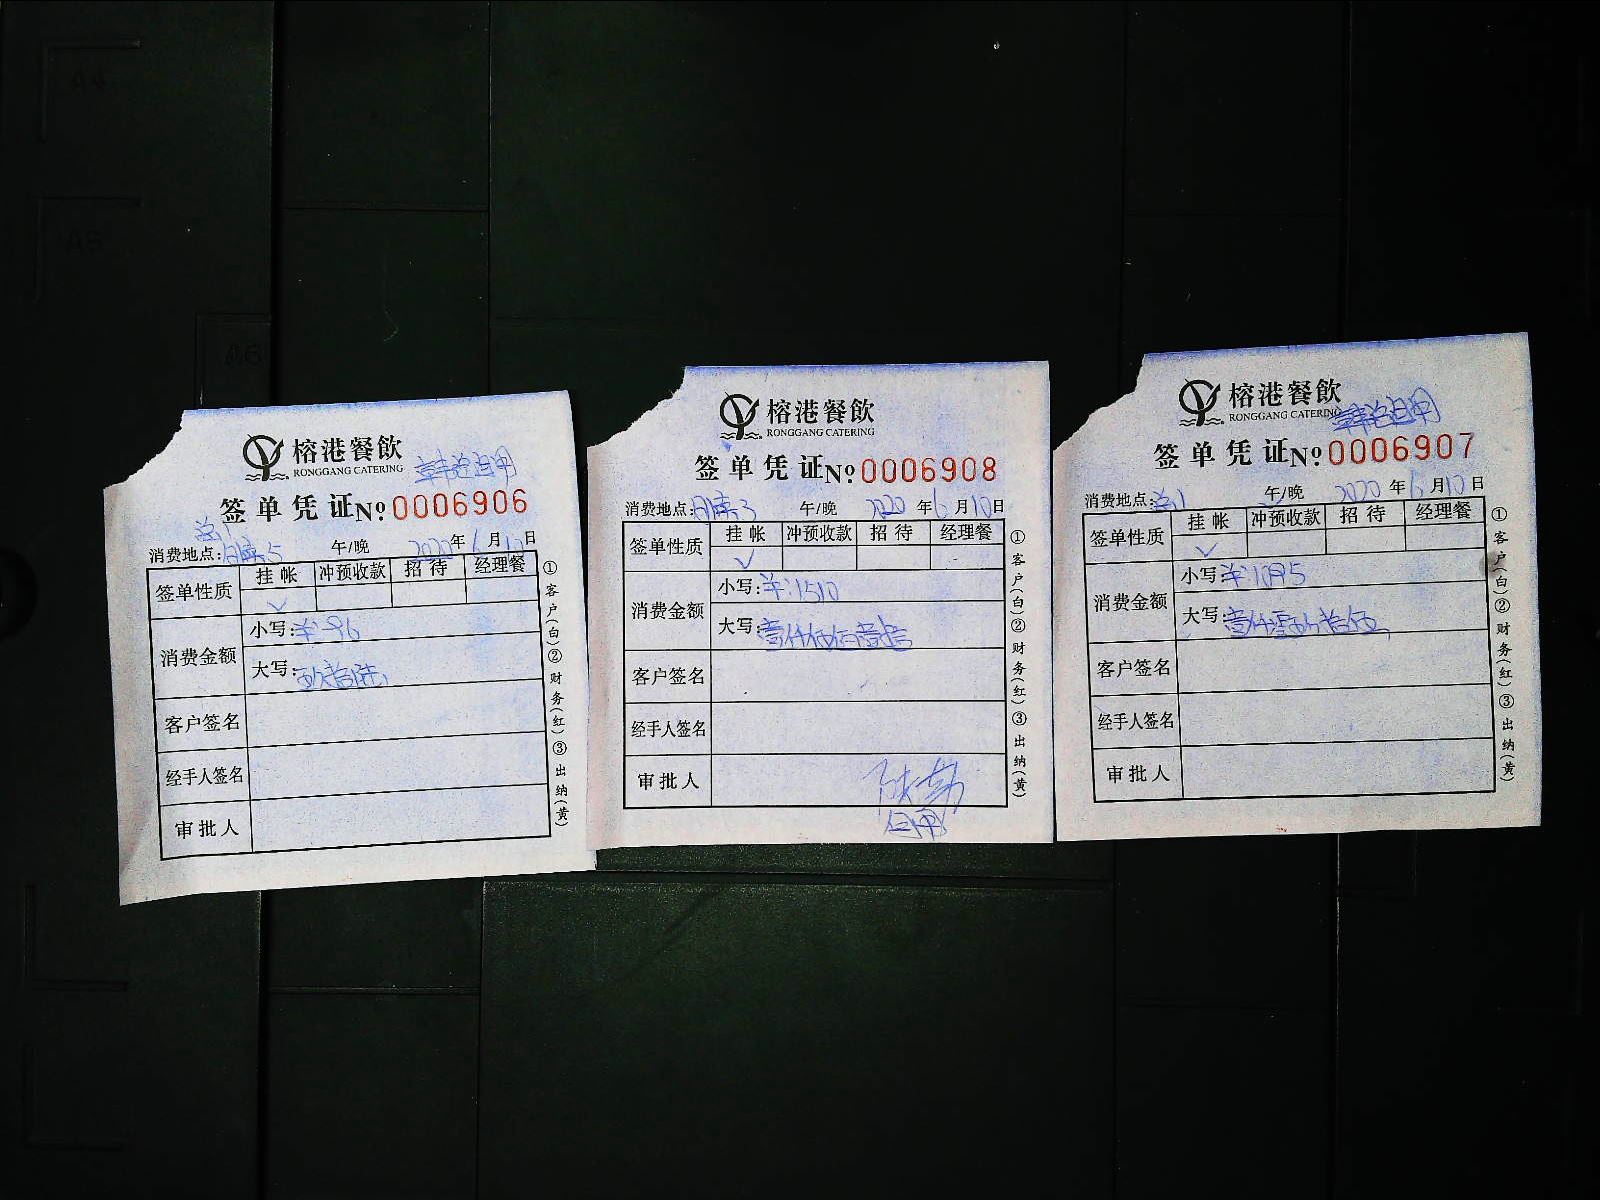 榕港餐飲
RONGGANG CATERING
签单凭证 No 0006906
消费地点: 5 午/晚 2020年6月10日
签单性质 挂帐 冲预收款 招待 经理餐
✓
消费金额
小写:¥96
大写:玖拾陆
客户签名
经手人签名
审批人
①客户(白)②财务(红)③出纳(黄)
榕港餐飲
RONGGANG CATERING
签单凭证 No 0006908
消费地点: 3 午/晚 2020年6月10日
签单性质 挂帐 冲预收款 招待 经理餐
✓
消费金额
小写:¥1510
大写:壹仟伍佰壹拾
客户签名
经手人签名
审批人
自用
①客户(白)②财务(红)③出纳(黄)
榕港餐飲
RONGGANG CATERING
自用
签单凭证 No 0006907
消费地点: 午/晚 2020年6月10日
签单性质 挂帐 冲预收款 招待 经理餐
✓
消费金额
小写:¥1095
大写:壹仟零玖拾伍
客户签名
经手人签名
审批人
①客户(白)②财务(红)③出纳(黄)